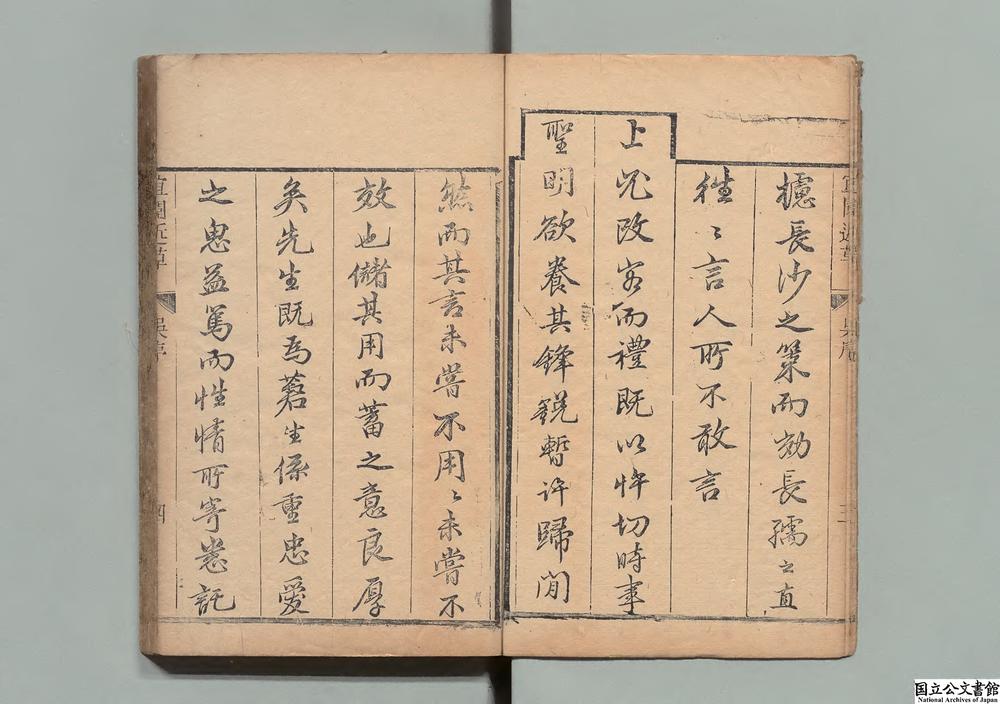 攄長沙之策而効長孺之直
往〻言人所不敢言
上兇改容而禮既以忤切時事
聖明欲養其鋒銳暫許歸閒
然而其言未嘗不用〻未嘗不
效也儲其用而蓄之意良厚
矣先生既爲蒼生係重忠愛
之思益篤而性情所寄悉託
宜園近草
吳序
三
宜園近草
吳序
四
国立公文書館
National Archives of Japan